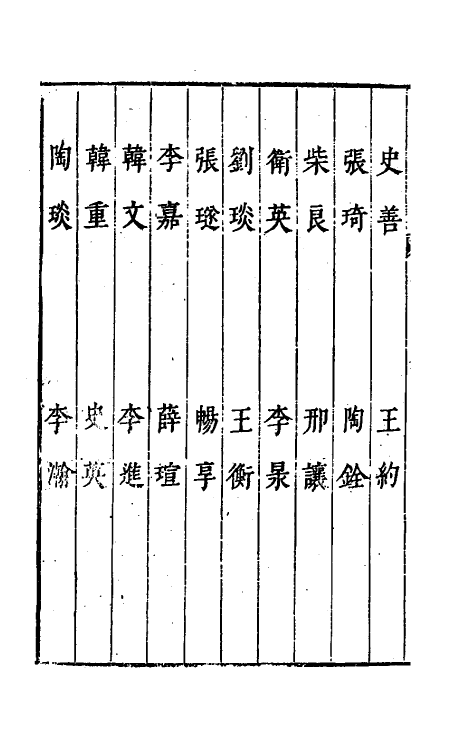 史善　王約
張琦　陶銓
柴良　邢讓
衛英　李杲
劉琰　王衡
張璲　暢亨
李嘉　薛瑄
韓文　李進
韓重　史英
陶琰　李瀚